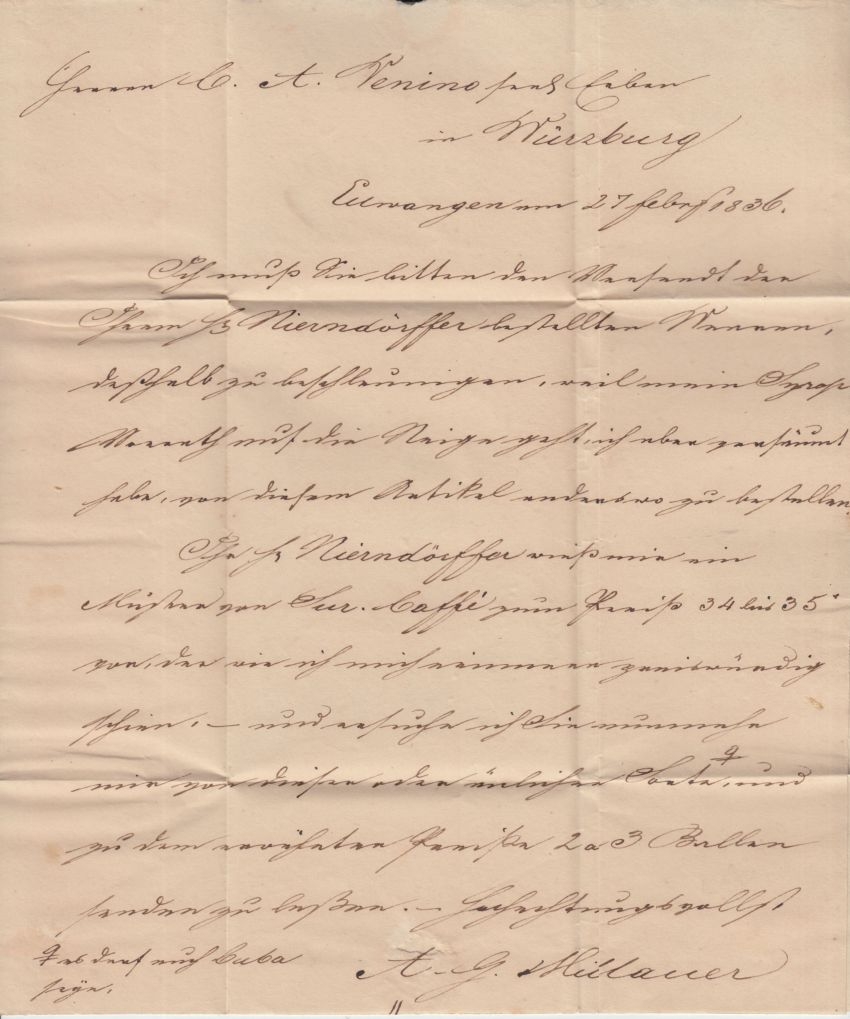 Herren C. A. Venino seel Erben
in Würzburg
Ellwangen am 27 Febr 1836.
Ich muß Sie bitten den Versandt der
Ihrem H Nierndörffer bestellten Waaren,
deßhalb zu beschleunigen, weil mein Syrop
Vorrath auf die Neige geht, ich aber versäumt
habe, von diesem Artikel anderswo zu bestellen.
Ihr H Nierndörffer wieß mir ein
Muster von Sur. Caffé zum Preiß 34 bis 35
vor, der wie ich mich erinnere preiswürdig
schien. – und ersuche ich Sie nunmehr
mir von dieser oder änlicher Sorte, und
zu dem erwähnten Preiße 2 a 3 Ballen
senden zu laßen. – Hochachtungsvollst.
es darf auch Cuba
seyn.
A. G. Millauer